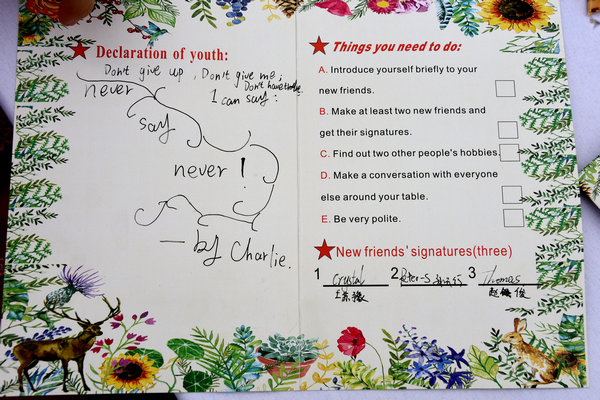 Declaration of youth:
Don't give up, Don't give me;
Don't have
never
I can say:
say
never!
—by Charlie.
Things you need to do:
A. Introduce yourself briefly to your
new friends.
B. Make at least two new friends and
get their signatures.
C. Find out two other people's hobbies.
D. Make a conversation with everyone
else around your table.
E. Be very polite.
New friends' signatures(three)
1 Crystal 2 Peter-S 3 Thomas